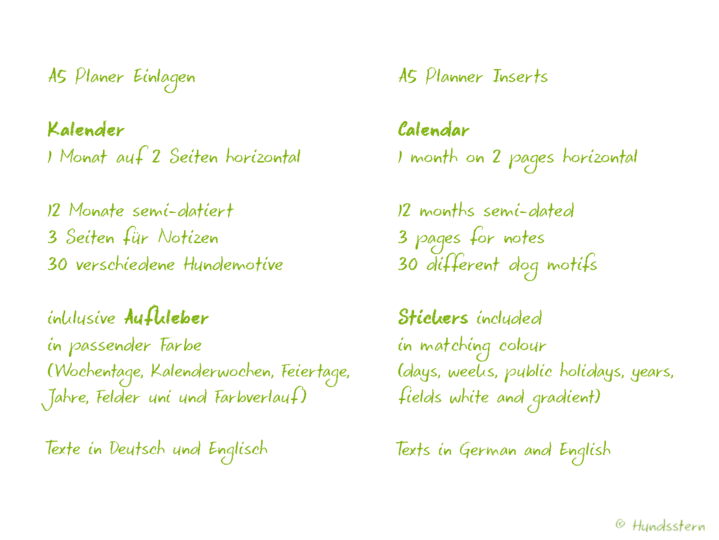 A5 Planer Einlagen
Kalender
1 Monat auf 2 Seiten horizontal
12 Monate semi-datiert
3 Seiten für Notizen
30 verschiedene Hundemotive
inklusive Aufkleber
in passender Farbe
(Wochentage, Kalenderwochen, Feiertage,
Jahre, Felder uni und Farbverlauf)
Texte in Deutsch und Englisch
A5 Planner Inserts
Calendar
1 month on 2 pages horizontal
12 months semi-dated
3 pages for notes
30 different dog motifs
Stickers included
in matching colour
(days, weeks, public holidays, years,
fields white and gradient)
Texts in German and English
© Hundsstern